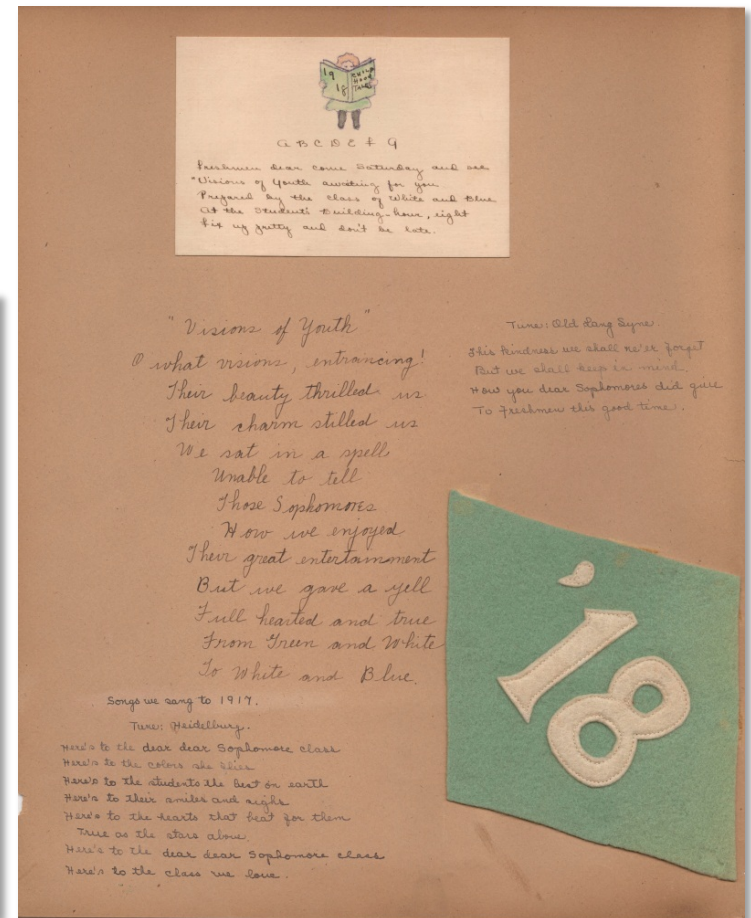 19 18
CHILD
HOOD
TALES
A B C D E F G
Freshmen dear come Saturday and see
"Visions of Youth awaiting for you
Prepared by the class of White and Blue
At the Student's Building - hour, eight
Fix up pretty and don't be late.
"Visions of Youth"
O what visions, entrancing!
Their beauty thrilled us
Their charm stilled us
We sat in a spell
Unable to tell
Those Sophomores
How we enjoyed
Their great entertainment
But we gave a yell
Full hearted and true
From Green and White
To White and Blue.
Tune: Old Lang Syne.
This kindness we shall ne'er forget
But we shall keep in mind.
How you dear Sophomores did give
To Freshmen this good time.
'18
Songs we sang to 1917.
Tune: Heidelburg.
Here's to the dear dear Sophomore class
Here's to the colors she flies
Here's to the students the best on earth
Here's to their smiles and sighs
Here's to the hearts that beat for them
True as the stars above
Here's to the dear dear Sophomore class
Here's to the class we love.